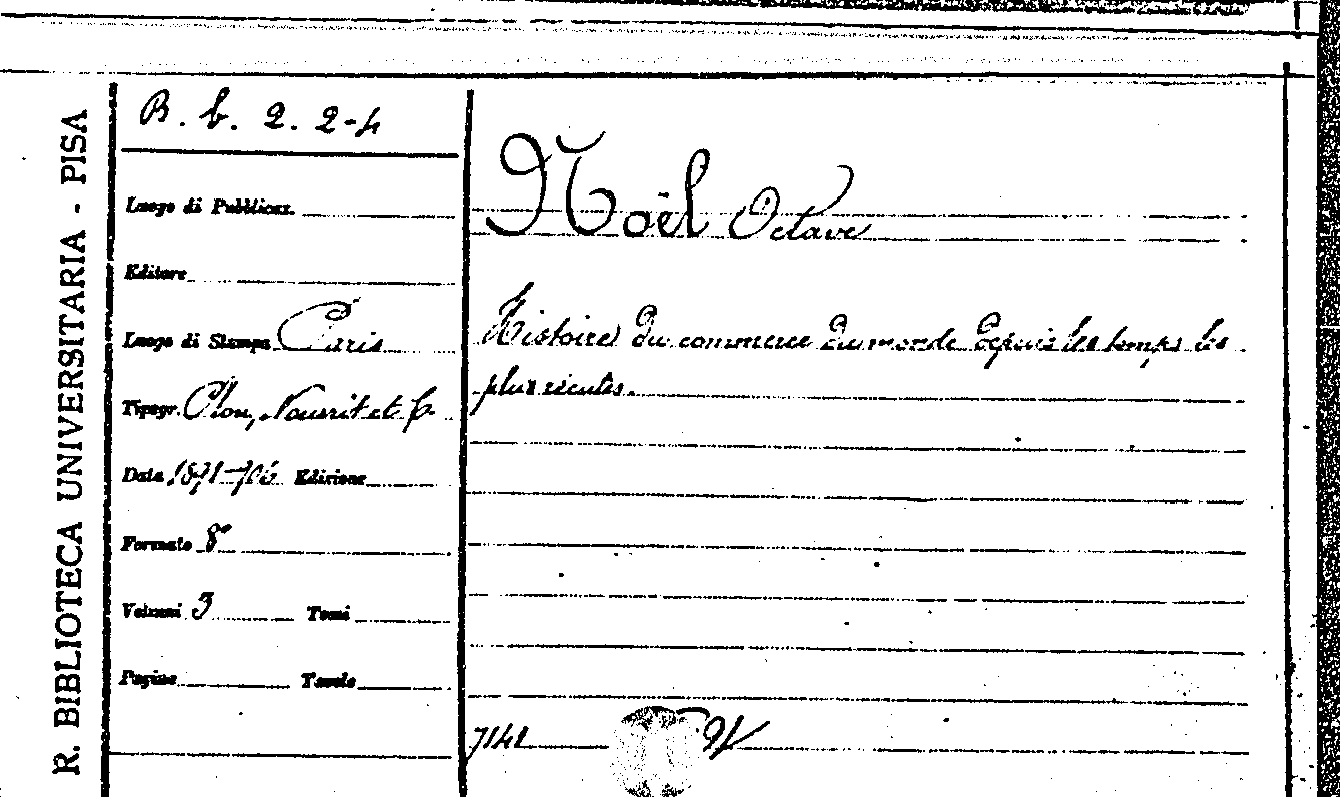 R. BIBLIOTECA UNIVERSITARIA - PISA
B. b. 2. 2-4
Luogo di Pubblicaz.
Editore
Luogo di Stampa Paris
Tipogr. Plon, Nourrit et C.
Data 1891-906 Edizione
Formato 8°
Volumi 3 Tomi
Pagine Tavole
Noël Octave
Histoire du commerce du monde depuis les temps les
plus récentes.
7141